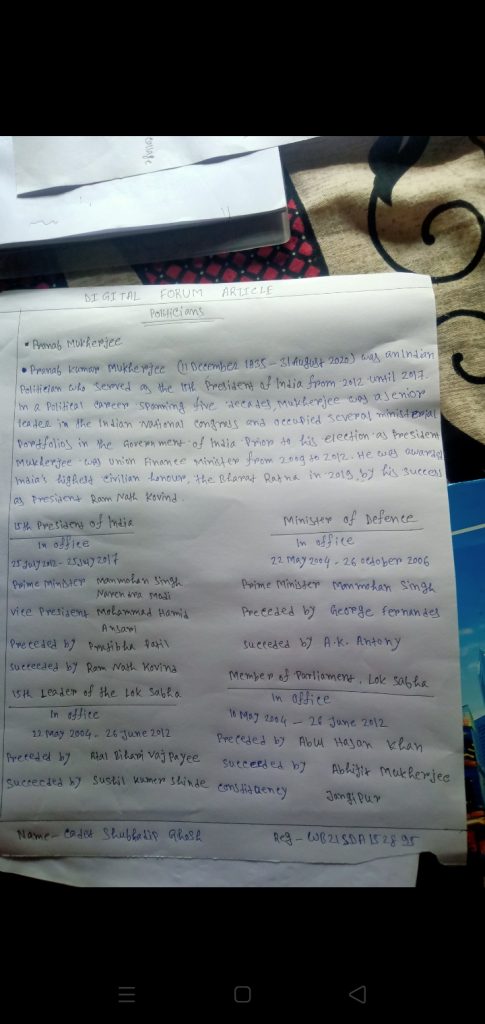 DIGITAL FORUM ARTICLE
Politicians
• Pranab Mukherjee
• Pranab Kumar Mukherjee (11 December 1935 - 31 August 2020) was an Indian
Politician who served as the President of India from 2012 until 2017.
In a Political career spanning five decades, Mukherjee was a senior
leader in the Indian National Congress and occupied several ministerial
Portfolios in the Government of India Prior to his election as President
Mukherjee was Union Finance Minister from 2009 to 2012. He was awarded
India's highest civilian honour, the Bharat Ratna in 2019, by his success
as President Ram Nath Kovind.
15th President of India
In office
25 July 2012 - 25 July 2017
Prime Minister Manmohan Singh
Narendra Modi
Vice President Mohammad Hamid
Ansari
Preceded by Pratibha Patil
Succeeded by Ram Nath Kovind
15th Leader of the Lok Sabha
In office
22 May 2004 - 26 June 2012
Preceded by Atal Bihari Vajpayee
Succeeded by Sushil Kumar Shinde
Minister of Defence
In office
22 May 2004 - 26 October 2006
Prime Minister Manmohan Singh
Preceded by George Fernandes
Succeeded by A.K. Antony
Member of Parliament, Lok Sabha
In office
10 May 2004 - 26 June 2012
Preceded by Abul Hasan Khan
Succeeded by Abhijit Mukherjee
Constituency Jangipur
Name - Cadet Shubhadip Ghosh
Reg - WB21SDA152895